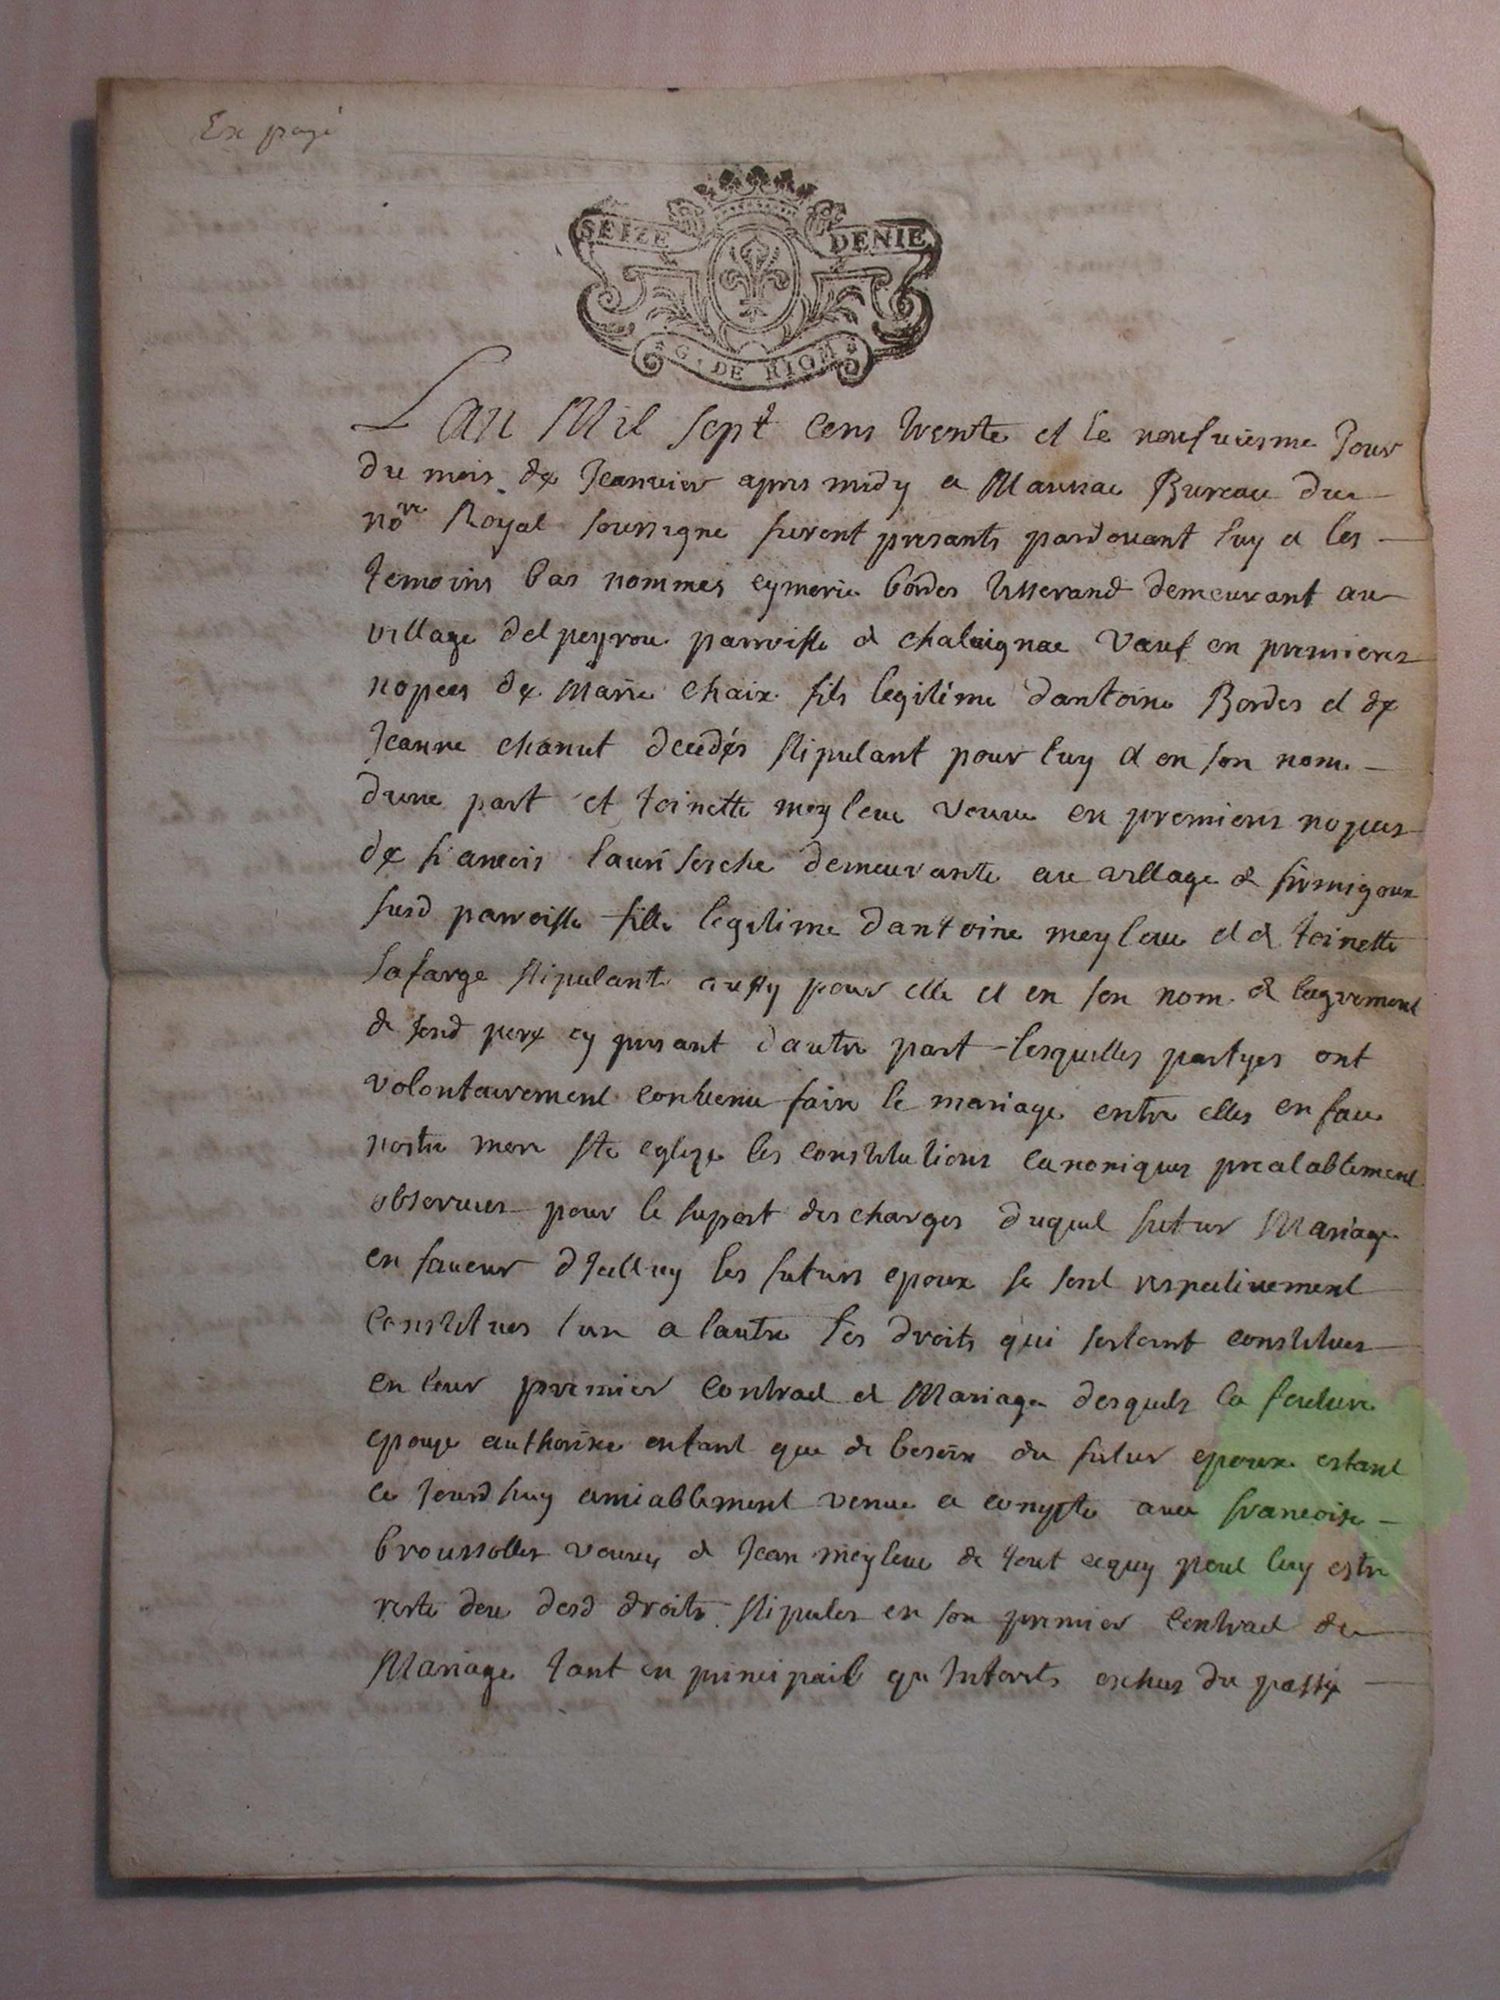 Ex page
SEIZE DENIE
G. DE RIOM
Lan Mil sept cens trente et le neufuiesme Jour
du mois de Jeanvier apres midy a Mauriac Bureau du
nore Royal soussigne furent presants pardevant luy et les
temoins bas nommes eymeric bordes tisserand demeurant au
village del peyrou parroisse de chalvignac veuf en premieres
nopces de Marie chaix fils legitime dantoine Bordes et de
Jeanne chanut decedés stipulant pour luy et en son nom
dune part et toinette meyleuc veuve en premieres nopces
de francois laur demeurante au village de
susd parroisse fille legitime dantoine meyleuc et de toinette
Lafarge stipulante aussy pour elle et en son nom de lagrement
de sond pere cy presant dautre part lesquelles partyes ont
volontairement convenu faire le mariage entre elles en face
nostre mere ste eglize les constitutions canoniques prealablement
observees pour le suport des charges duquel futur Mariage
en faveur dIcelluy les futurs epoux se sont respectivement
constitues lun a lautre les droits qui constitues
en leur premier contract de Mariage desquels la future
epouze authorisee entant que de besoin du futur epoux estant
ce Jourdhuy amiablement venue a compte avec francoise
broussolles veuve de Jean meyleuc de tout cequy peut luy estre
reste deu desd droits stipules en son premier contract de
Mariage tant en principail qu Interets escheus du passé